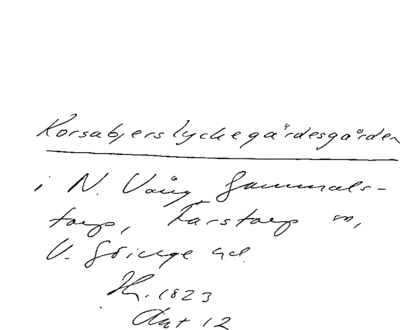 Korsabjerslyckegärdesgården
i N. Vång Gammals-
torp, Farstorp sn,
V. Göinge hd.
Jh. 1823
Akt 12